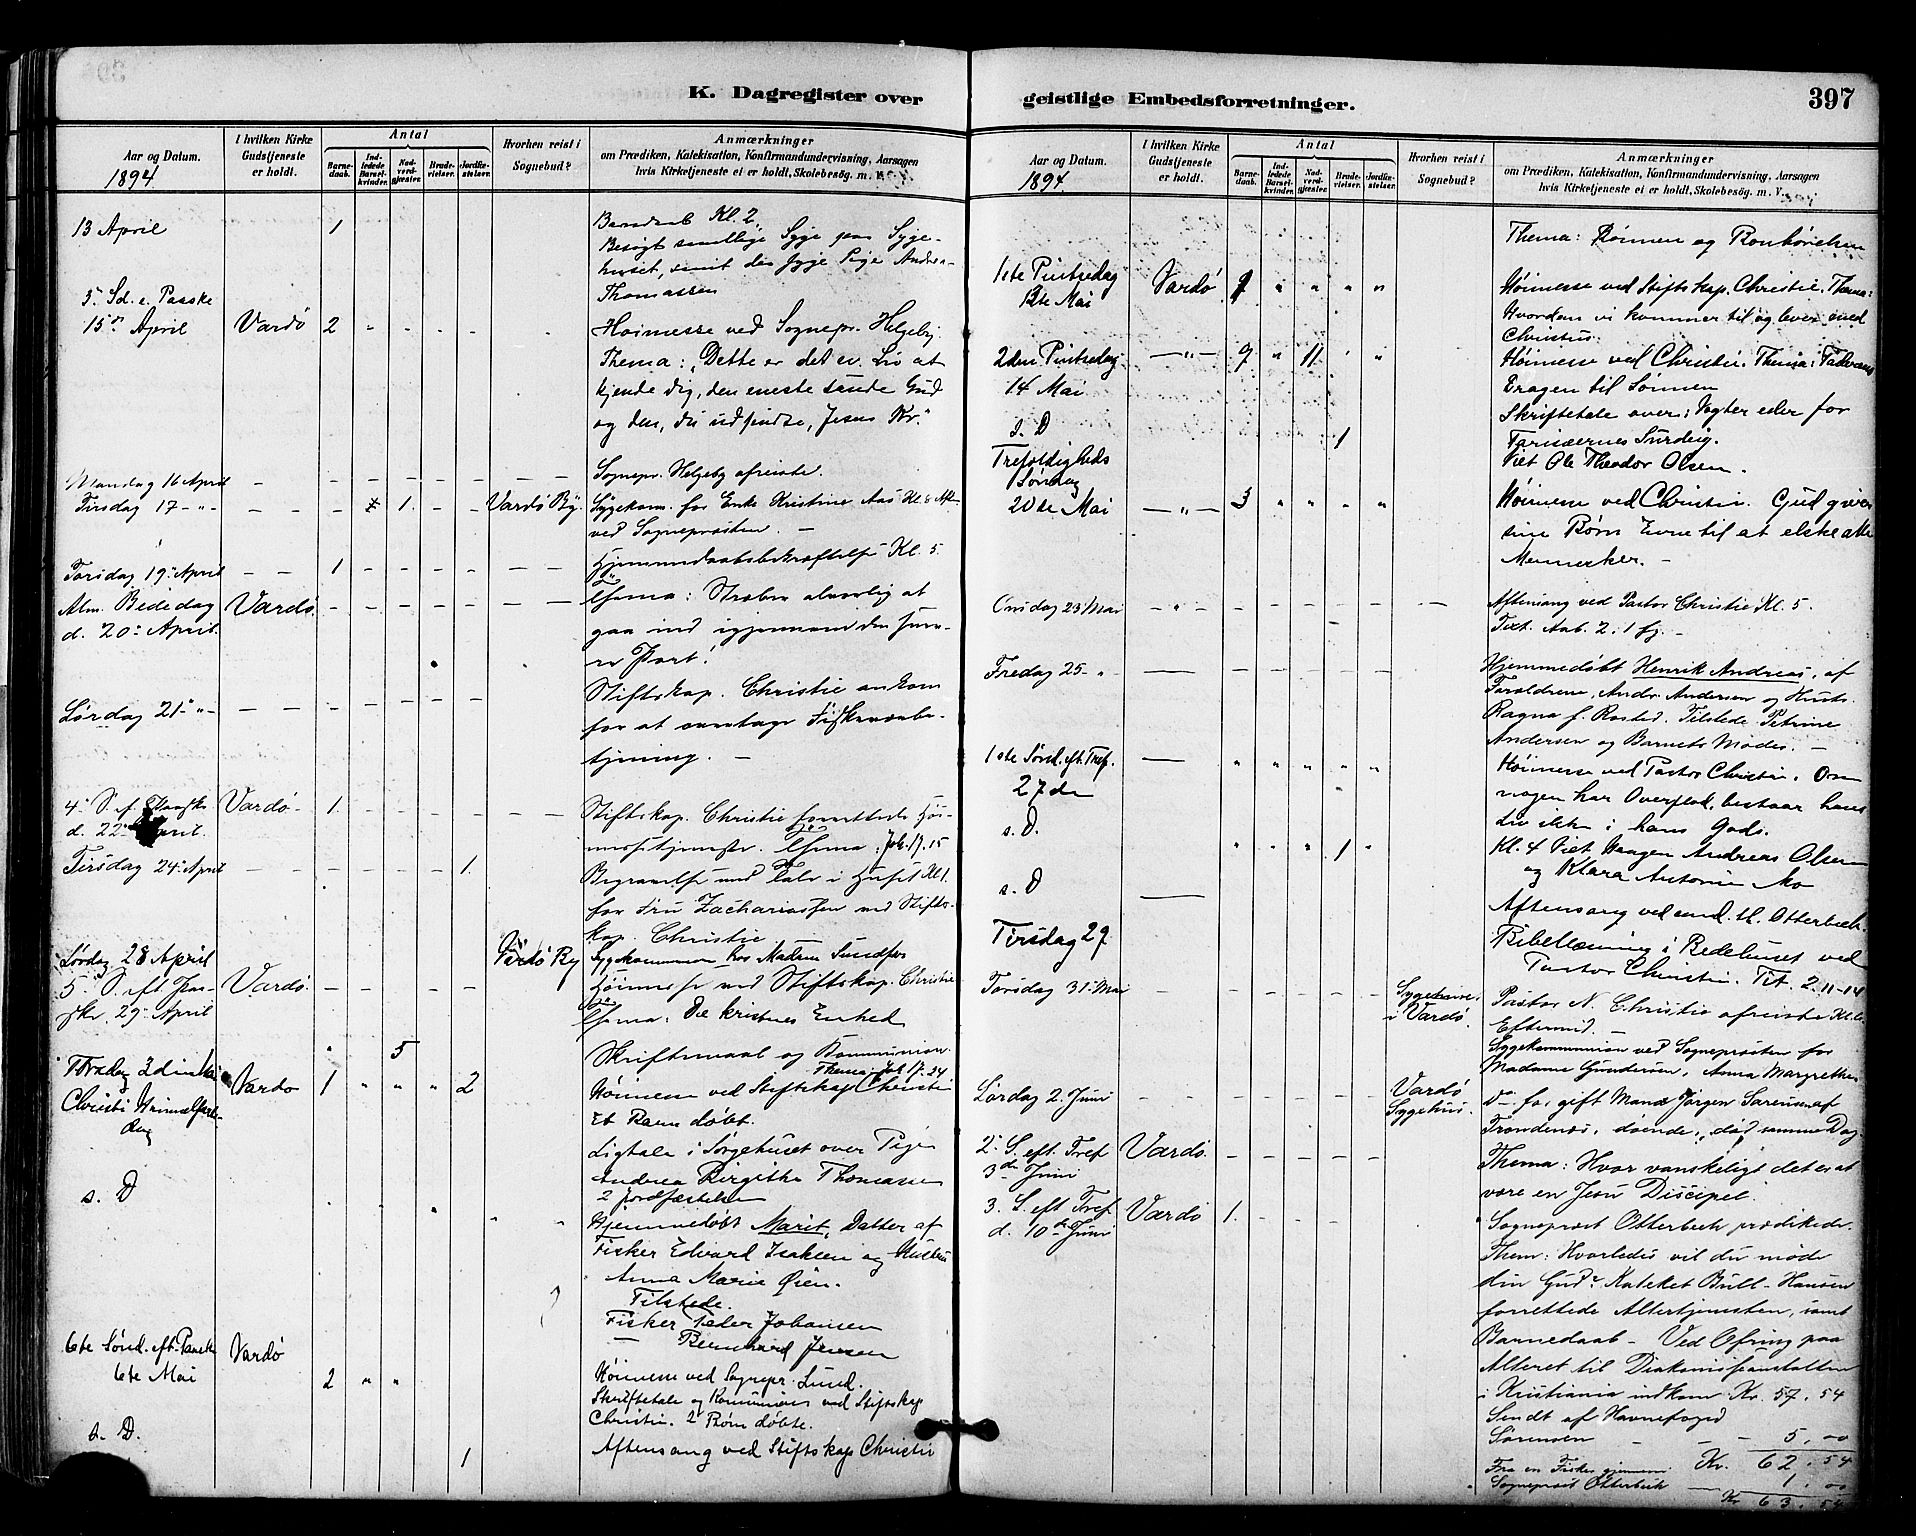 K. Dagregister over
Aar og Datum.
1894
I hvilken Kirke Gudstjeneste er holdt.
Antal
Barnedaab.
Indledede Barselkvinder.
Nadverdgjester.
Brudevielser.
Jordfæstelser.
Hvorhen reist i Sognebud?
Anmærkninger
om Prædiken, Katekisation, Konfirmandundervisning, Aarsagen
hvis Kirketjeneste ei er holdt, Skolebesøg. m. V.
13 April 1 Barndaab Kl. 2
Besøgt samtlige Syge paa Syge-
huset, samt den syge Pige Andrea
Thomassen
3. Sd. e. Paaske
15de April Vardø 2 Høimesse ved Sognepr. Helgeby.
Thema: "Dette er det ev. Liv at
kjende dig, den eneste sande Gud
og den, du udsendte, Jesus Kr."
Mandag 16 April Sognepr. Helgeby afreiste.
Tirsdag 17 - " - 1. Vardø By. Sygekom. for Enke Kristine Aas Kl. 8 Aft.
ved Sognepræsten. —
Torsdag 19. April 1 Hjemmedaabsbekræftelse Kl. 5.
Alm. Bededag Vardø. Thema: Stræber alvorlig at
d. 20. April. gaa ind igjennem den snev-
re Port!
Lørdag 21. " - Stiftskap. Christie ankom
for at overtage Fiskeværbe-
tjening. —
4. S. ef. Paaske Vardø 1. Stiftskap. Christie forrettede Høi-
d. 22. April. messetjeneste. Thema: Joh. 17. 15
Tirsdag 24. April 1. Begravelse med Tale i Huset Kl 1.
for Fru Zachariassen ved Stifts-
kap. Christie
Lørdag 28 April Vardø By Sygekommunion hos Madam Sundfør
5. S. eft. Paa- Vardø. Høimesse ved Stiftskap. Christie
ske. 29. April Thema: De kristnes Enhed
5 Skriftemaal og Kommunion.
Thema: Joh 17. 24
Torsdag 3die Mai Vardø 1 " " " 2 Høimesse ved Stiftskap Christie
Christi Himmelfarts- Et Barn døbt.
dag Ligtale i Sørgehuset over Pigen
Andrea Birgitha Thomassen
s. D 2 Jordfæstelser
Hjemmedøbt Marit, Datter af
Fisker Edvard Isaksen og Hustru
Anna Marie Øien.
Tilstede.
Fisker Peder Johansen
— Bernhard Jensen
6te Sønd. eft. Paaske Vardø
6te Mai 2 " " Høimesse ved Sognepr. Lund.
Skriftetale og Kommunion ved Stiftskap
Christie. 2 Børn døbte.
s. D. 1 Aftensang ved Stiftskap Christie
geistlige Embedsforretninger.
397
Aar og Datum.
1894
I hvilken Kirke Gudstjeneste er holdt.
Antal
Barnedaab.
Indledede Barselkvinder.
Nadverdgjester.
Brudevielser.
Jordfæstelser.
Hvorhen reist i Sognebud?
Anmærkninger
om Prædiken, Katekisation, Konfirmandundervisning, Aarsagen
hvis Kirketjeneste ei er holdt, Skolebesøg. m. V.
Thema: Bønnen og Bønhørelsen
1ste Pintsedag Vardø " " " " Høimesse ved Stiftskap. Christie. Thema:
Mai Hvordan vi kommer til og lever med
Christus.
2den Pintsedag — " — 7 " 11 " Høimesse ved Christie. Thema: Faderens
14 Mai Dragen til Sønnen
Skriftetale over: Vogter eder for
s. D 1 Farisæernes Surdeig.
Viet Ole Theodor Olsen.
Trefoldigheds
Søndag
20de Mai — " — 3 " " " " Høimesse ved Christie. Gud giver
sine Børn Evne til at elske alle
Mennesker. —
Onsdag 23 Mai — " — Aftensang ved Pastor Christie Kl. 5.
Text. Aab. 2. 1 fg. —
Fredag 25 - " Hjemmedøbt Henrik Andreas, af
Forældrene, Andr. Andersen og Hustr.
Ragna f. Rosted. Tilstede Petrine
Andersen og Barnets Moder. —
1ste Sønd. eft. Tref. — " " " " " Høimesse ved Pastor Christie. Om
27de nogen har Overflod, bestaar hans
Liv ikke i hans Gods.
s. D. " " " 1 " Kl. 4 Viet Haagen Andreas Olsen
og Klara Antonie Mo
s. D — Aftensang ved Otterbech.
Tirsdag 29 Bibellæsning i Bedehuset ved
Pastor Christie. Tit. 2. 11-14
Torsdag 31. Mai Sygehuse. i Vardø. Pastor N. Christie afreiste Kl.
Eftermid. —
Sygekommunion ved Sognepræsten for
Madame Gundersen, Anna Margrethe
Lørdag 2. Juni Vardø Sygehus. Do for gift Mand Jørgen Sørensen af
Trondenæs, døende, død samme Dag.
2. S. eft. Tref Vardø. Thema: Hvor vanskeligt det er at
3de Juni være en Jesu Discipel.
3. S. eft Tref Vardø 1. Sognepræst Otterbech prædikede.
d. 10de Juni Them: Hvorledes vil du møde
din Gud? Kateket Bull-Hansen
forrettede Altertjenesten, samt
Barnedaab — Ved Ofring paa
Alteret til Diakonissanstalten
i Kristiania indkom Kr. 57. 54
Sendt af Havnefoged
Sørensen - - - 5. 00
Kr. 62. 54
Fra en Fisker gjennem
Sognepræst Otterbech — 1. 00
Kr 63. 54